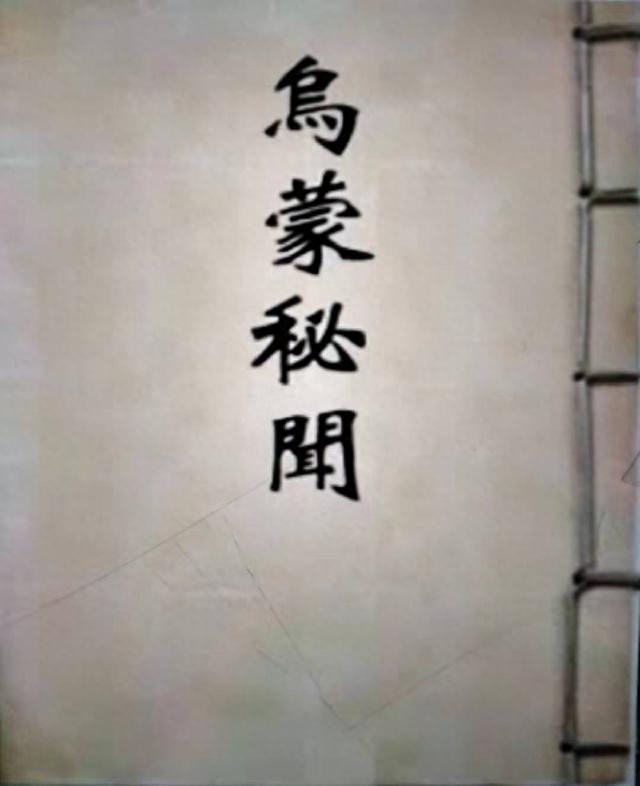 烏蒙秘聞